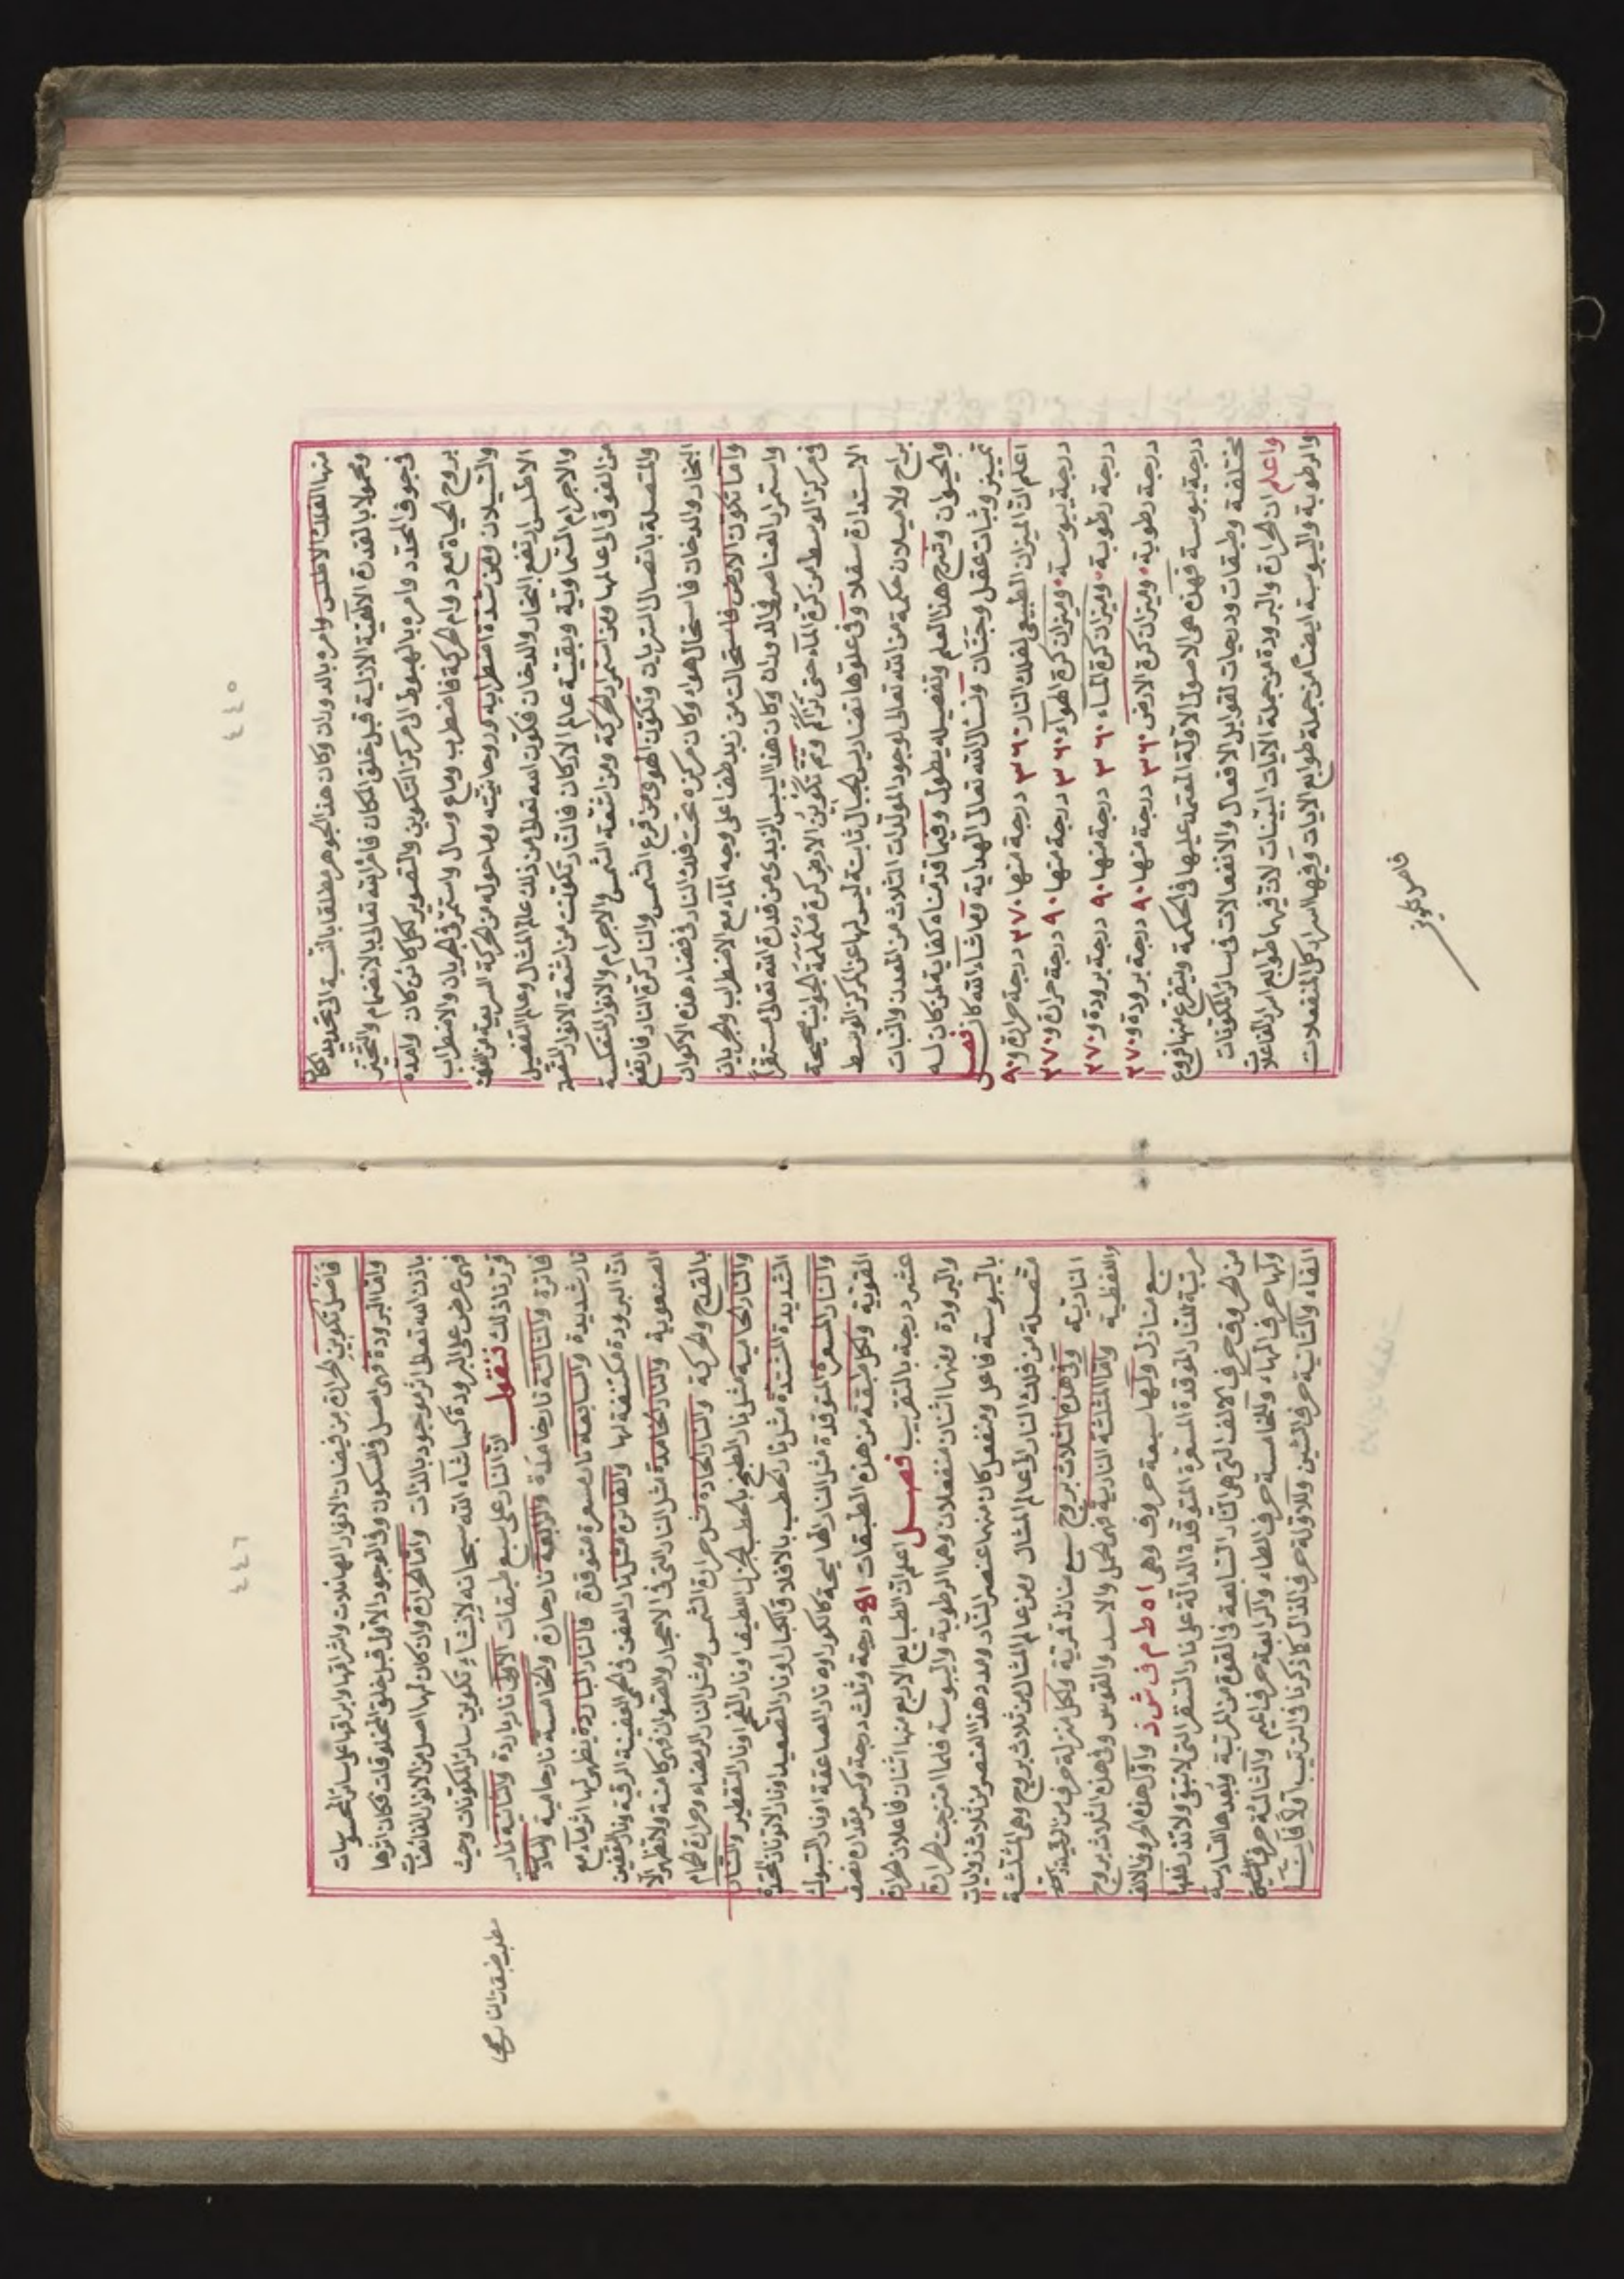 ٤٤٥
منها الفلك الاطلس وامره بالدوران وكان هذا الجوهر مطلقا بالنسبة الى تحديد المكان
ومحمولا بالقدرة الالهية الازلية قبل خلق المكان فامر الله تعالى بالانضمام والتحيز
في جوف المحدد وامره بالهبوط الى مركز التكوين والتصوير لكل كائن كان وامده
بروح الحياة مع دوام الحركة فاضطرب وماع وسال واستمر في الجريان والاضطراب
والسيلان ومن شدة اضطرابه وروحانيته وما حوله من الحركة السريعة من الفلك
الاطلس ارتفع البخار والدخان فكون الله تعالى من ذلك عالم المثال وعالم التفصيل
والاجرام السماوية وبقية عالم الاركان فالنار تكونت من اشعة الانوار المتصلة
من الفوق الى عالمها ومن استمرار الحركة ومن اشعة الشمس والاجرام والانوار المنعكسة
والمتصلة باتصال السريان وتكون الهوى من قرع الشمس والنار كرة النار فارتفع
البخار والدخان فاستحال هواء وكان مركزه تحت فلك النار في فضاء هذه الاكوان
واما تكون الارض فاستحالت من زبد طفا على وجه الماء مع الاضطراب والجريان
واستمرار العناصر في الدوران وكان هذا اليبس الزبدى من قدرة الله تعالى مستقرا
في مركز الوسط من كرة الماء حتى تراكم وتم تكوين الارض كرة ململمة الجوانب صحيحة
الاستدارة سفلا وفي علوها تضاريس الجبال ثابتة ليس لها عن المركز الوسط
براح ولا ميلان حكمة من الله تعالى لوجود المولدات الثلاث من المعدن والنبات
والحيوان وشرح هذا العلم وتفصيله يطول وفيما قدمناه كفاية لمن كان له
تمييز وثبات عقل وجنان ونسال الله تعالى الهداية وما شاء الله كان فصل
اعلم ان الميزان الطبيعي لفلك النار ٣٦٠ درجة منها ٢٧٠ درجة حرارة و٩٠
درجة يبوسة وميزان كرة الهواء ٣٦٠ درجة منها ٩٠ درجة حرارة و٢٧٠
درجة رطوبة وميزان كرة الماء ٣٦٠ درجة منها ٩٠ درجة برودة و٢٧٠
درجة رطوبة وميزان كرة الارض ٣٦٠ درجة منها ٩٠ درجة برودة و٢٧٠
درجة يبوسة فهذه هي الاصول الاولة المعتمد عليها في الحكمة ويتفرع منها فروع
مختلفة وطبقات ودرجات لقوابل الافعال والانفعالات في سائر المكونات
واعلم ان الحرارة والبرودة من جملة الآيات البينات لان فيهما طوابع اسرار الفاعلات
والرطوبة واليبوسة ايضا من جملة طوابع الايات وفيها اسرار كل المنفعلات
فاصل تكوين
٤٤٦
فاصل تكوين الحرارة من فيضان الانوار الهاطلات واشراقها وابراقها على سائر المحسوسات
واما البرودة فهي اصل في السكون وفي الوجود الاول قبل خلق المخلوقات فكان اثرها
باذن الله تعالى اثر موجود بالذات واما الحرارة وان كان لها اصل من الانوار الفائضات
فهي عرض على البرودة كما شاء الله سبحانه لانشاء تكوين سائر المكونات وحيث
قررنا ذلك فنقول ان النار على سبع طبقات الاولى نار باردة والثانية نار
فاترة والثالثة نار خامدة والرابعة نار حارة والخامسة نار حامية والسادسة
نار شديدة والسابعة نار مسعرة متوقدة فالنار الباردة يظهر لها اثر ما مع
ان البرودة مكتنفة لها والفاترة مثل نار العفن في الحمى العفينة الرقية ونار التعفين
الصنعوية والنار الخامدة مثل النار التي في الاحجار والصوان فهي كامنة ولا تظهر الا
بالقدح والحركة والنار الحارة مثل حرارة الشمس ومثل النار الرمضاء وحرارة الحمام
والنار الحامية مثل نار الطبخ باحطب الجزل اللطيف او نار الفحم او نار التقطير والنار
الشديدة المشتدة مثل نار الحطب بالافلاق الكبار او نار التصعيد او نار الاتونات المتخذة
والنار المسعرة المتوقدة مثل النار الهايجة كالكور او ه نار الصاعقة او نار السبوك
القوية ولكل طبقة من هذه الطبقات ٥١ درجة وثلث درجة وكسر مقداره نصف
عشر درجة بالتقريب فصل اعلم ان الطبايع الاربع منها اثنان فاعلان الحرارة
والبرودة ومنها اثنان منفعلان وهما الرطوبة واليبوسة فلما امتزجت الحرارة
باليبوسة فاعل ومنفعل كان منهما عنصر النار ومدد هذا العنصر من ثلاث زوايات
متصلة من فلك النار الى عالم المثال ومن عالم المثال من ثلاث بروج وهي المثلثة
النارية وفي هذه الثلاث بروج سبع منازل قمرية ولكل منزلة حرف من الحروف الرقمية
واللفظية واما المثلثة النارية فهي الحمل والاسد والقوس وفي هذه الثلاث بروج
سبع منازل ولها سبعة حروف وهي ا ه ط م ف ش ذ واول هذه الحروف الالف
مرتبة للنار الموقدة المسعرة المتوقدة الدالة على نار السقر التي لا تبقي ولا تذر فلها
من الحروف حرف الالف التي هي النار السابعة في القوة من المرتبة وبعدها السادسة
ولها حرف الهاء والخامسة حرف الطاء والرابعة حرف الميم والثالثة حرف الشين
الفاء والثانية حرف الشين والاولة حرف الذال كما ذكرنا في الترتيب اولا